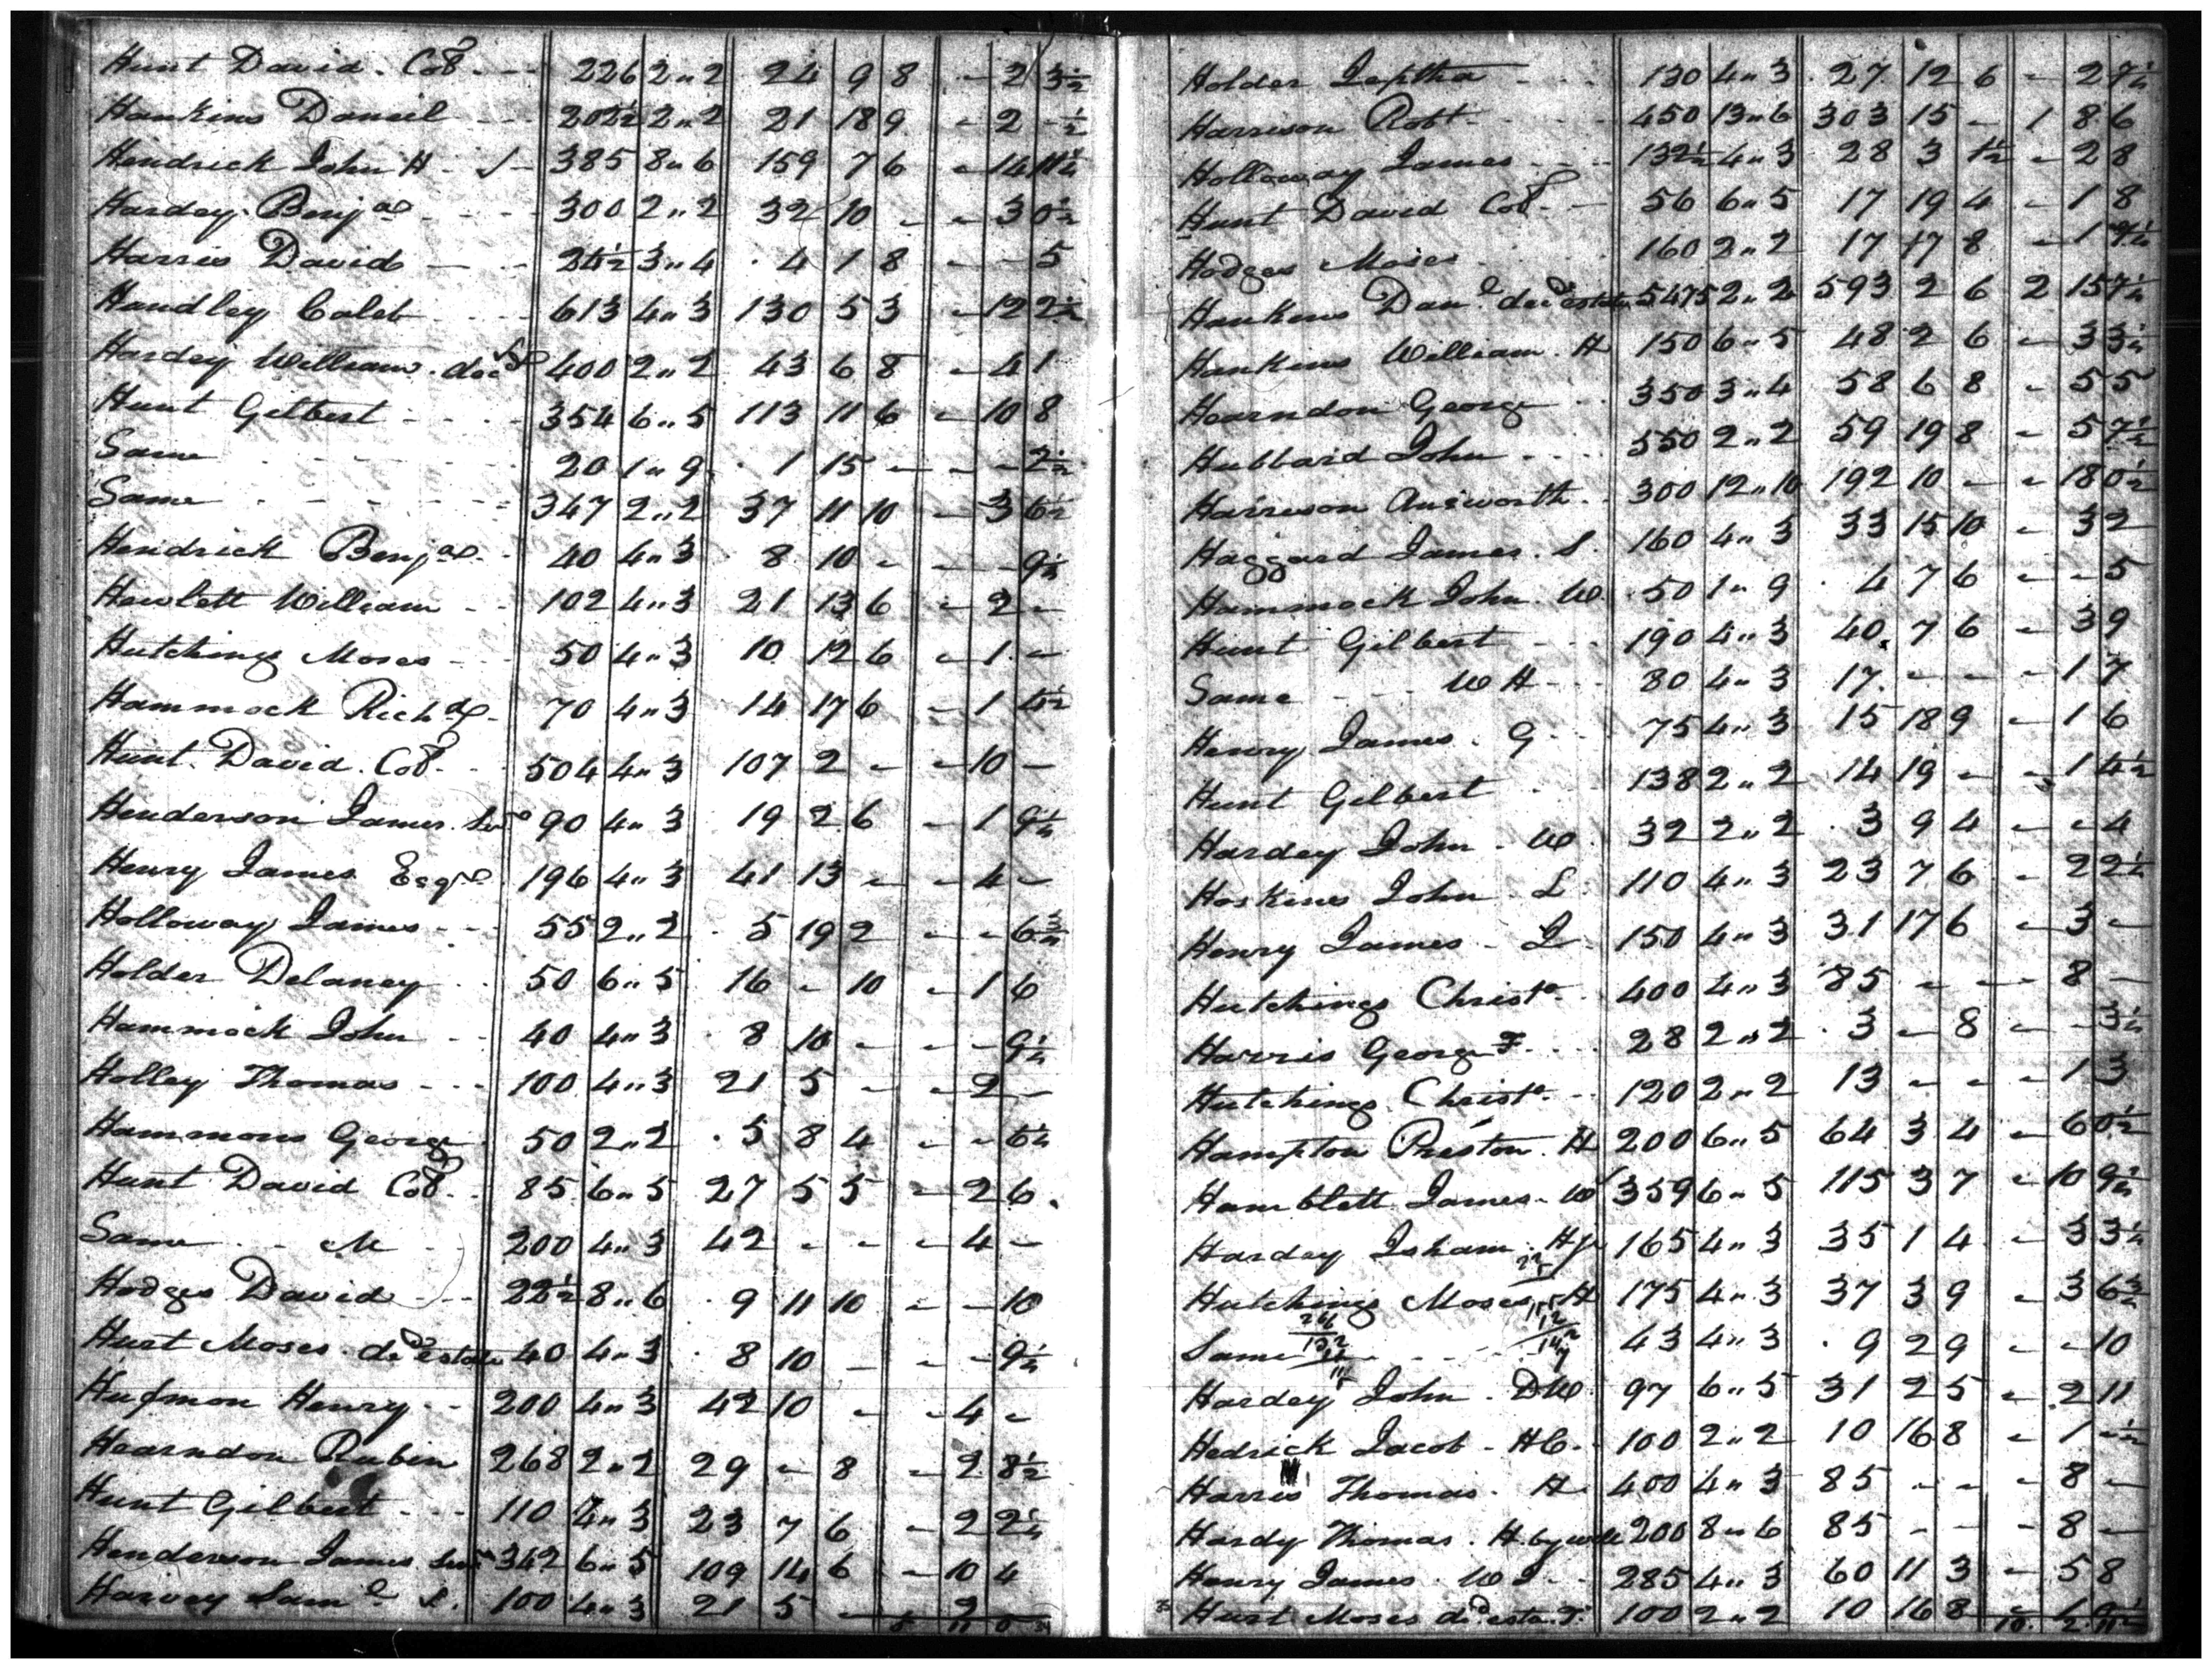 Hunt David. Col. 226 2"2 24 9 8 - 2 3½
Hankins Daneil 202½ 2"2 21 18 9 - 2 - ½
Hendrick John H S 385 8"6 159 7 6 - 14 11¼
Hardey Benja 300 2"2 32 10 - - 3 0½
Harris David 24½ 3"4 4 1 8 - - 5
Handley Caleb 613 4"3 130 5 3 - 12 2¼
Hardey William. decd 400 2"2 43 6 8 - 4 1
Hunt Gilbert 354 6"5 113 11 6 - 10 8
Same 20 1"9 1 15 - - - 2½
Same 347 2"2 37 11 10 - 3 6½
Hendrick Benja 40 4"3 8 10 - - - 9¼
Hewlett William 102 4"3 21 13 6 - 2 -
Hutchings Moses 50 4"3 10 12 6 - 1 -
Hammock Richd 70 4"3 14 17 6 - 1 4½
Hunt David. Col. 504 4"3 107 2 - - 10 -
Henderson James. Senr 90 4"3 19 2 6 - 1 9¼
Henry James Esqr 196 4"3 41 13 - - 4 -
Holloway James 55 2"2 5 19 2 - - 6¾
Holder Delaney 50 6"5 16 - 10 - 1 6
Hammock John 40 4"3 8 10 - - - 9¼
Holley Thomas 100 4"3 21 5 - - 2 -
Hammons George 50 2"2 5 8 4 - - 6¼
Hunt David Col. 85 6"5 27 5 5 - 2 6
Same M 200 4"3 42 - - - 4 -
Hodges David 22½ 8"6 9 11 10 - - 10
Hurt Moses decd estate 40 4"3 8 10 - - - 9¼
Hufmon Henry 200 4"3 42 10 - - 4 -
Hearndon Rubin 268 2"2 29 - 8 - 2 8½
Hunt Gilbert 110 4"3 23 7 6 - 2 2¼
Henderson James Senr 342 6"5 109 14 6 - 10 4
Harvey Saml S. 100 4"3 21 5 - - 2
8 11 0
Holder Jeptha 130 4"3 27 12 6 - 2 7¼
Harrison Robt 450 13"6 303 15 - 1 8 6
Holloway James 132½ 4"3 28 3 1½ - 2 8
Hunt David Col. 56 6"5 17 19 4 - 1 8
Hodges Moses 160 2"2 17 17 8 - 1 9¼
Hankins Danl decd estate 5475 2"2 593 2 6 2 15 7¼
Hankins William. H 150 6"5 48 2 6 - 3 3¼
Hearndon George 350 3"4 58 6 8 - 5 5
Hubbard John 550 2"2 59 19 8 - 5 7½
Harrison Answorth 300 12"10 192 10 - - 18 0½
Haggard James. S. 160 4"3 33 15 10 - 3 2
Hammock John. W 50 1"9 4 7 6 - - 5
Hunt Gilbert 190 4"3 40 7 6 - 3 9
Same W H 80 4"3 17 - - - 1 7
Henry James. G 75 4"3 15 18 9 - 1 6
Hunt Gilbert 138 2"2 14 19 - - 1 4½
Hardey John. W 32 2"2 3 9 4 - - 4
Hoskins John L 110 4"3 23 7 6 - 2 2¼
Henry James - J 150 4"3 31 17 6 - 3 -
Hutchings Christo 400 4"3 85 - - - 8 -
Harris George F 28 2"2 3 - 8 - - 3¼
Hutchings Christo 120 2"2 13 - - - 1 3
Hampton Preston. H 200 6"5 64 3 4 - 6 0½
Hamblett James. W 359 6"5 115 3 7 - 10 9¾
Hardey Isham. H 165 4"3 35 1 4 - 3 3¼
Hutchings Moses. H 175 4"3 37 3 9 - 3 6¾
Same 43 4"3 9 2 9 - - 10
Hardey John. D W 97 6"5 31 2 5 - 2 11
Hedrick Jacob - H C. 100 2"2 10 16 8 - 1 - ½
Harris Thomas. H 400 4"3 85 - - - 8 -
Hardy Thomas. H. by will 200 8"6 85 - - - 8 -
Henry James. W J 285 4"3 60 11 3 - 5 8
Hurt Moses decd esta. T. 100 2"2 10 16 8 - 1 0½
10. 2. 11½